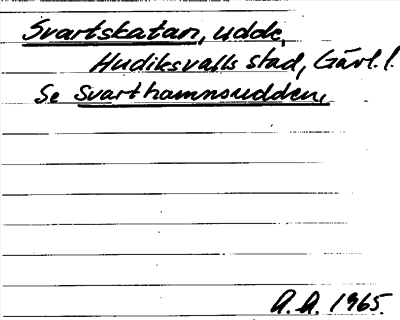 Svartskatan, udde,
Hudiksvalls stad, Gävl. l.
Se Svarthamnsudden,
A. A. 1965.